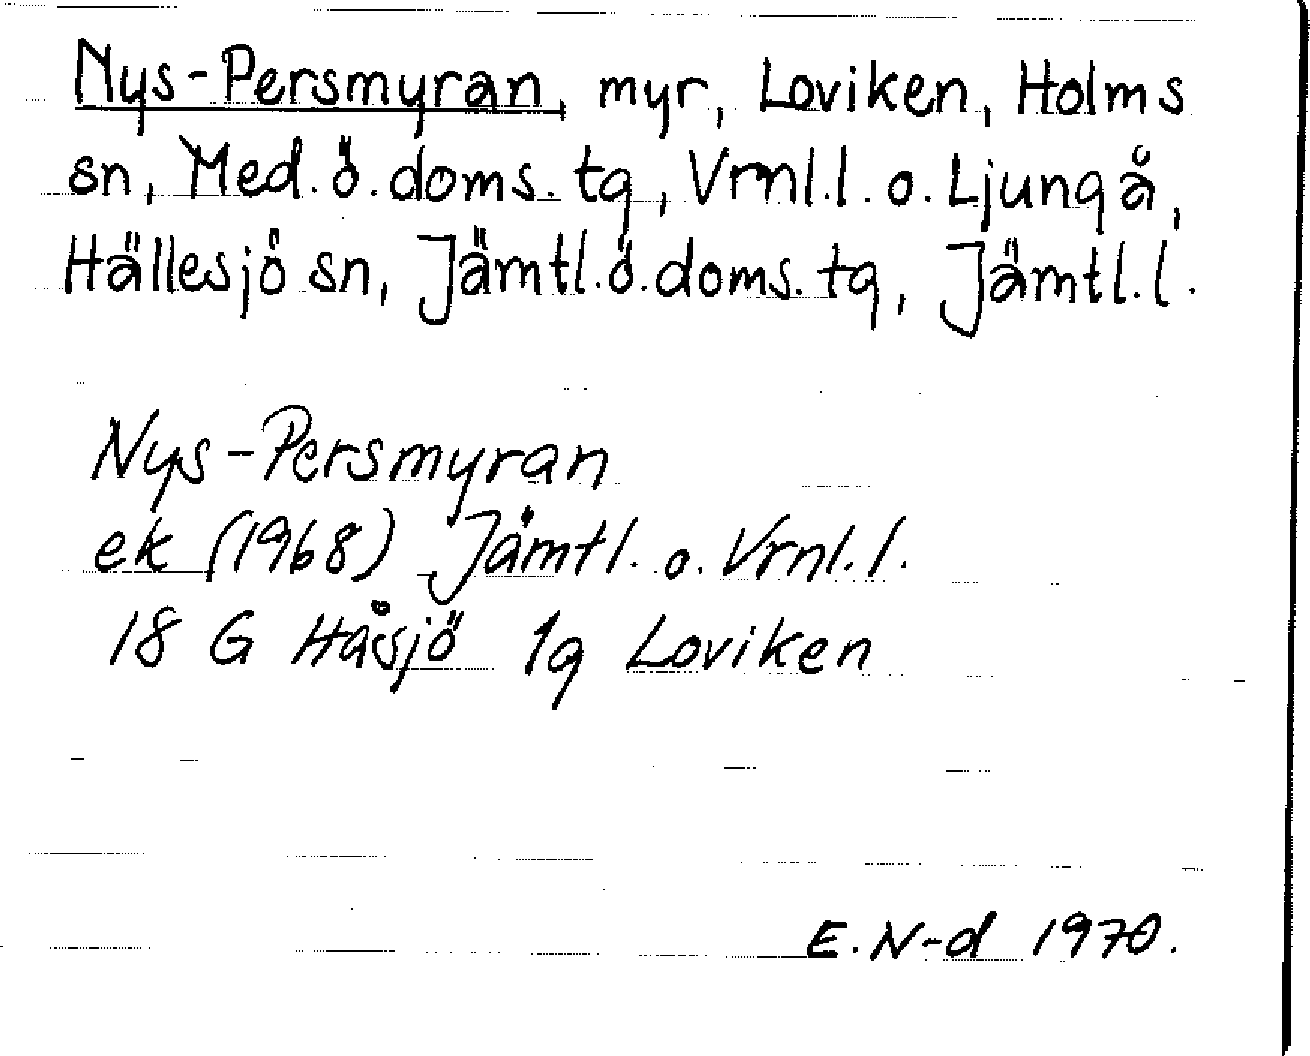 Nys-Persmyran, myr, Loviken, Holms
sn, Med. ö. doms. tg, Vrnl.l. o. Ljungå,
Hällesjö sn, Jämtl. ö. doms. tg, Jämtl. l.
Nys-Persmyran
ek (1968) Jämtl. o. Vrnl. l.
18 G Håsjö 1g Loviken
E. N-d 1970.